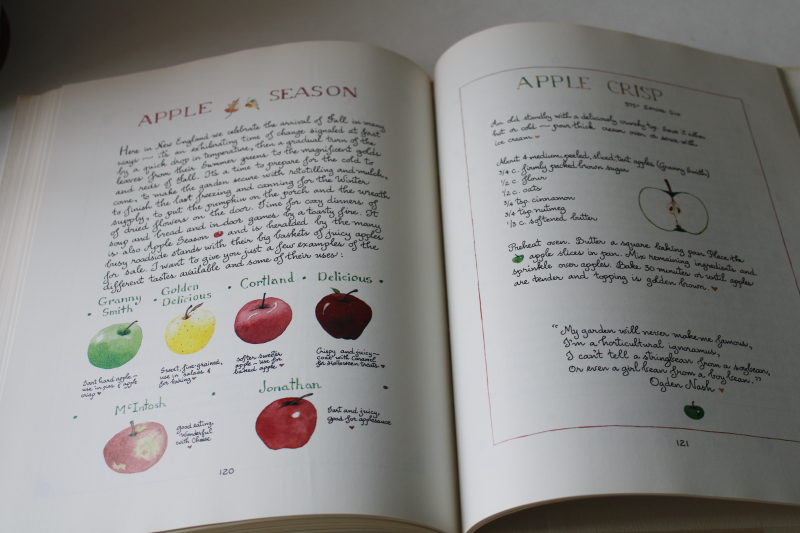 APPLE SEASON
Here in New England we celebrate the arrival of Fall in many
ways — it's an exhilarating time of change signaled at first
by a quick drop in temperature, then a gradual turn of the
leaves from their Summer greens to the magnificent golds
and reds of Fall. It's a time to prepare for the cold to
come, to make the garden secure with rototilling and mulch,
to finish the last freezing and canning for the Winter
supply, to put the pumpkin on the porch and the wreath
of dried flowers on the door. Time for cozy dinners of
soup and bread and in-door games by a toasty fire. It
is also Apple Season and is heralded by the many
busy roadside stands with their big baskets of juicy apples
for sale. I want to give you just a few examples of the
different tastes available and some of their uses:
Granny
Smith
Golden
Delicious
Cortland
Delicious
Tart hard apple —
use in pies & apple
crisp
Sweet, fine-grained,
use in salads &
for baking
Softer sweeter
apple — use for
baked apple
Crispy and juicy —
coat with caramel
for Halloween treats
McIntosh
good eating.
Wonderful
with Cheese
Jonathan
Tart and juicy,
good for applesauce
120
APPLE CRISP
375° Serves Six
An old standby with a deliciously crunchy top. Serve it either
hot or cold — pour thick cream over it, serve with
ice cream
About 4 medium, peeled, sliced tart apples (Granny Smith)
3/4 c. firmly packed brown sugar
1/2 c. flour
1/2 c. oats
3/4 tsp. cinnamon
3/4 tsp. nutmeg
1/3 c. softened butter
Preheat oven. Butter a square baking pan. Place the
apple slices in pan. Mix remaining ingredients and
sprinkle over apples. Bake 30 minutes or until apples
are tender and topping is golden brown.
"My garden will never make me famous,
I'm a horticultural ignoramus,
I can't tell a stringbean from a soybean,
Or even a girl bean from a boy bean."
Ogden Nash
121